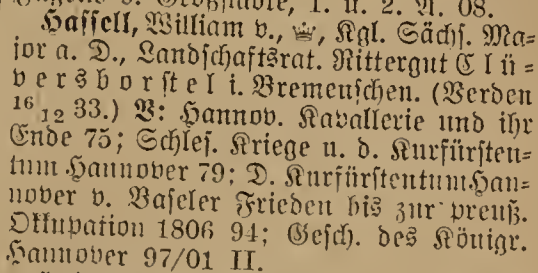 Hassell, William v., ♕, Kgl. Sächs. Ma-
jor a. D., Landschaftsrat. Rittergut Clü-
versborstel i. Bremenschen. (Verden
16/12 33.) V: Hannov. Kavallerie und ihr
Ende 75; Schles. Kriege u. d. Kurfürsten-
tum Hannover 79; D. Kurfürstentum Han-
nover v. Baseler Frieden bis zur preuß.
Okkupation 1806 94; Gesch. des Königr.
Hannover 97/01 II.